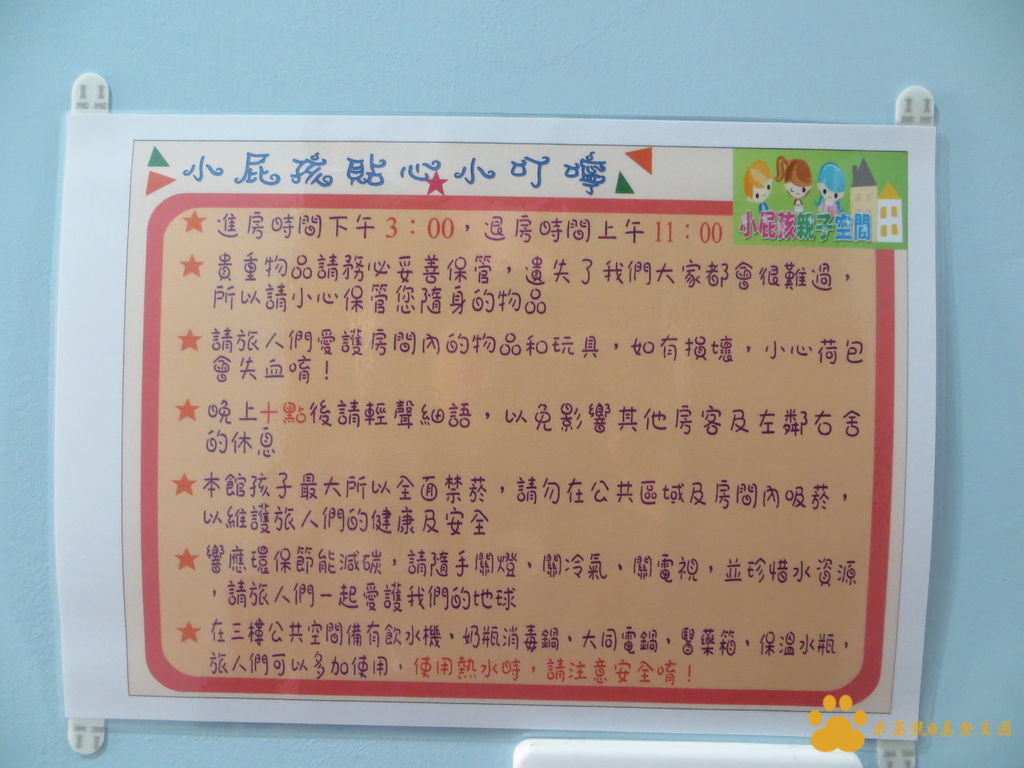 小屁孩貼心小叮嚀
小屁孩親子空間
進房時間下午 3：00，退房時間上午 11：00
貴重物品請務必妥善保管，遺失了我們大家都會很難過，
所以請小心保管您隨身的物品
請旅人們愛護房間內的物品和玩具，如有損壞，小心荷包
會失血唷！
晚上十點後請輕聲細語，以免影響其他房客及左鄰右舍
的休息
本館孩子最大所以全面禁菸，請勿在公共區域及房間內吸菸，
以維護旅人們的健康及安全
響應環保節能減碳，請隨手關燈、關冷氣、關電視，並珍惜水資源
，請旅人們一起愛護我們的地球
在三樓公共空間備有飲水機、奶瓶消毒鍋、大同電鍋、醫藥箱、保溫水瓶，
旅人們可以多加使用，使用熱水時，請注意安全唷！